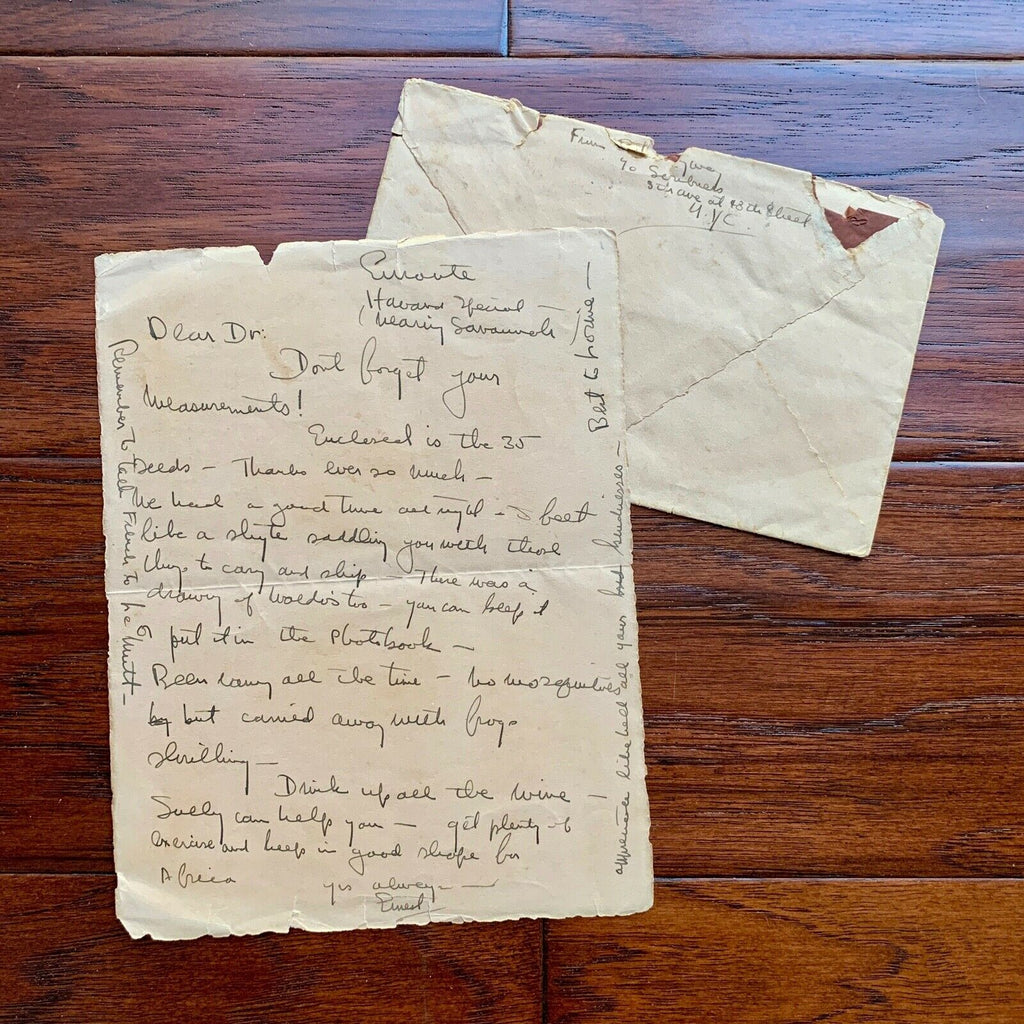 From
℅ Scribners
5th Ave at 48th Street
N.Y.C.
Enroute
Havana Special —
(nearing Savannah)
Dear Dr:
Dont forget your
Measurements!
Enclosed is the 35
Deeds — Thanks ever so much —
We had a good time all right — I feel
like a shyte saddling you with those
things to carry and ship — There was a
drawing of Waldo's too — you can keep it
or put it in the Photobook —
Been rainy all the time — no mosquitoes
but carried away with frogs
shrilling —
Drink up all the wine —
Sully can help you — get plenty of
exercise and keep in good shape for
Africa
yrs always —
Ernest
Remember to tell French to
appreciate like hell all your kindnesses —
Best to Lorine —